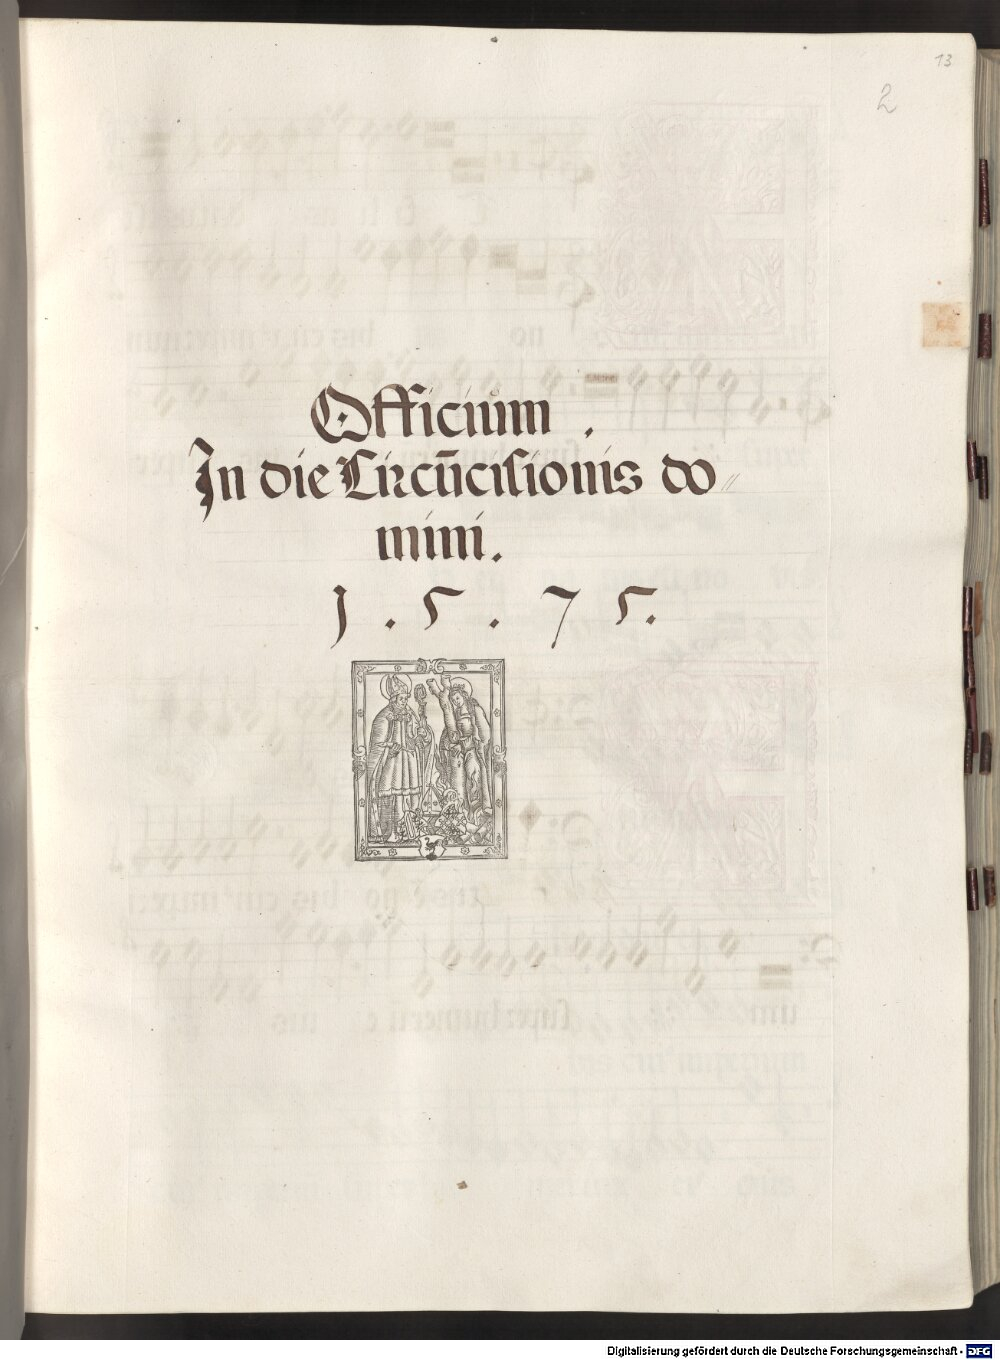 13
2
Officium .
In die Circūcisionis do⸗
mini.
1 . 5 . 7 5 .
Digitalisierung gefördert durch die Deutsche Forschungsgemeinschaft - DFG